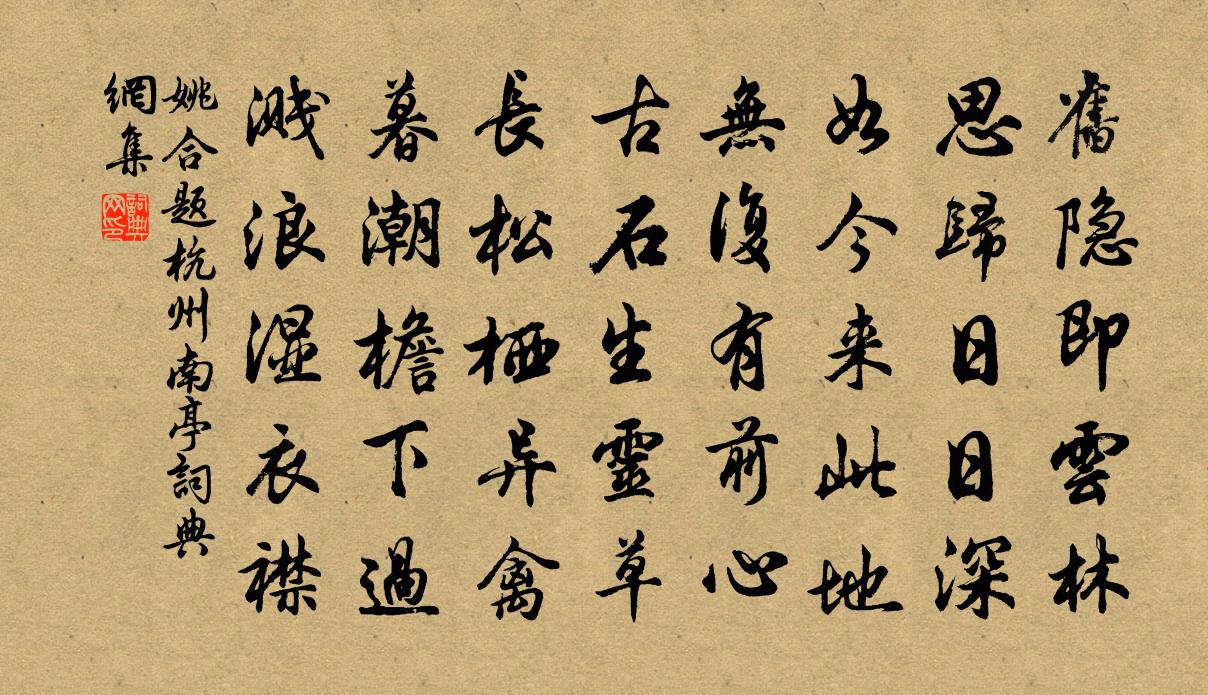 舊隐即雲林
思歸日日深
如今来此地
無復有前心
古石生靈草
長松栖异禽
暮潮檐下過
濺浪濕衣襟
姚合题杭州南亭詞典
網集
詞典网印